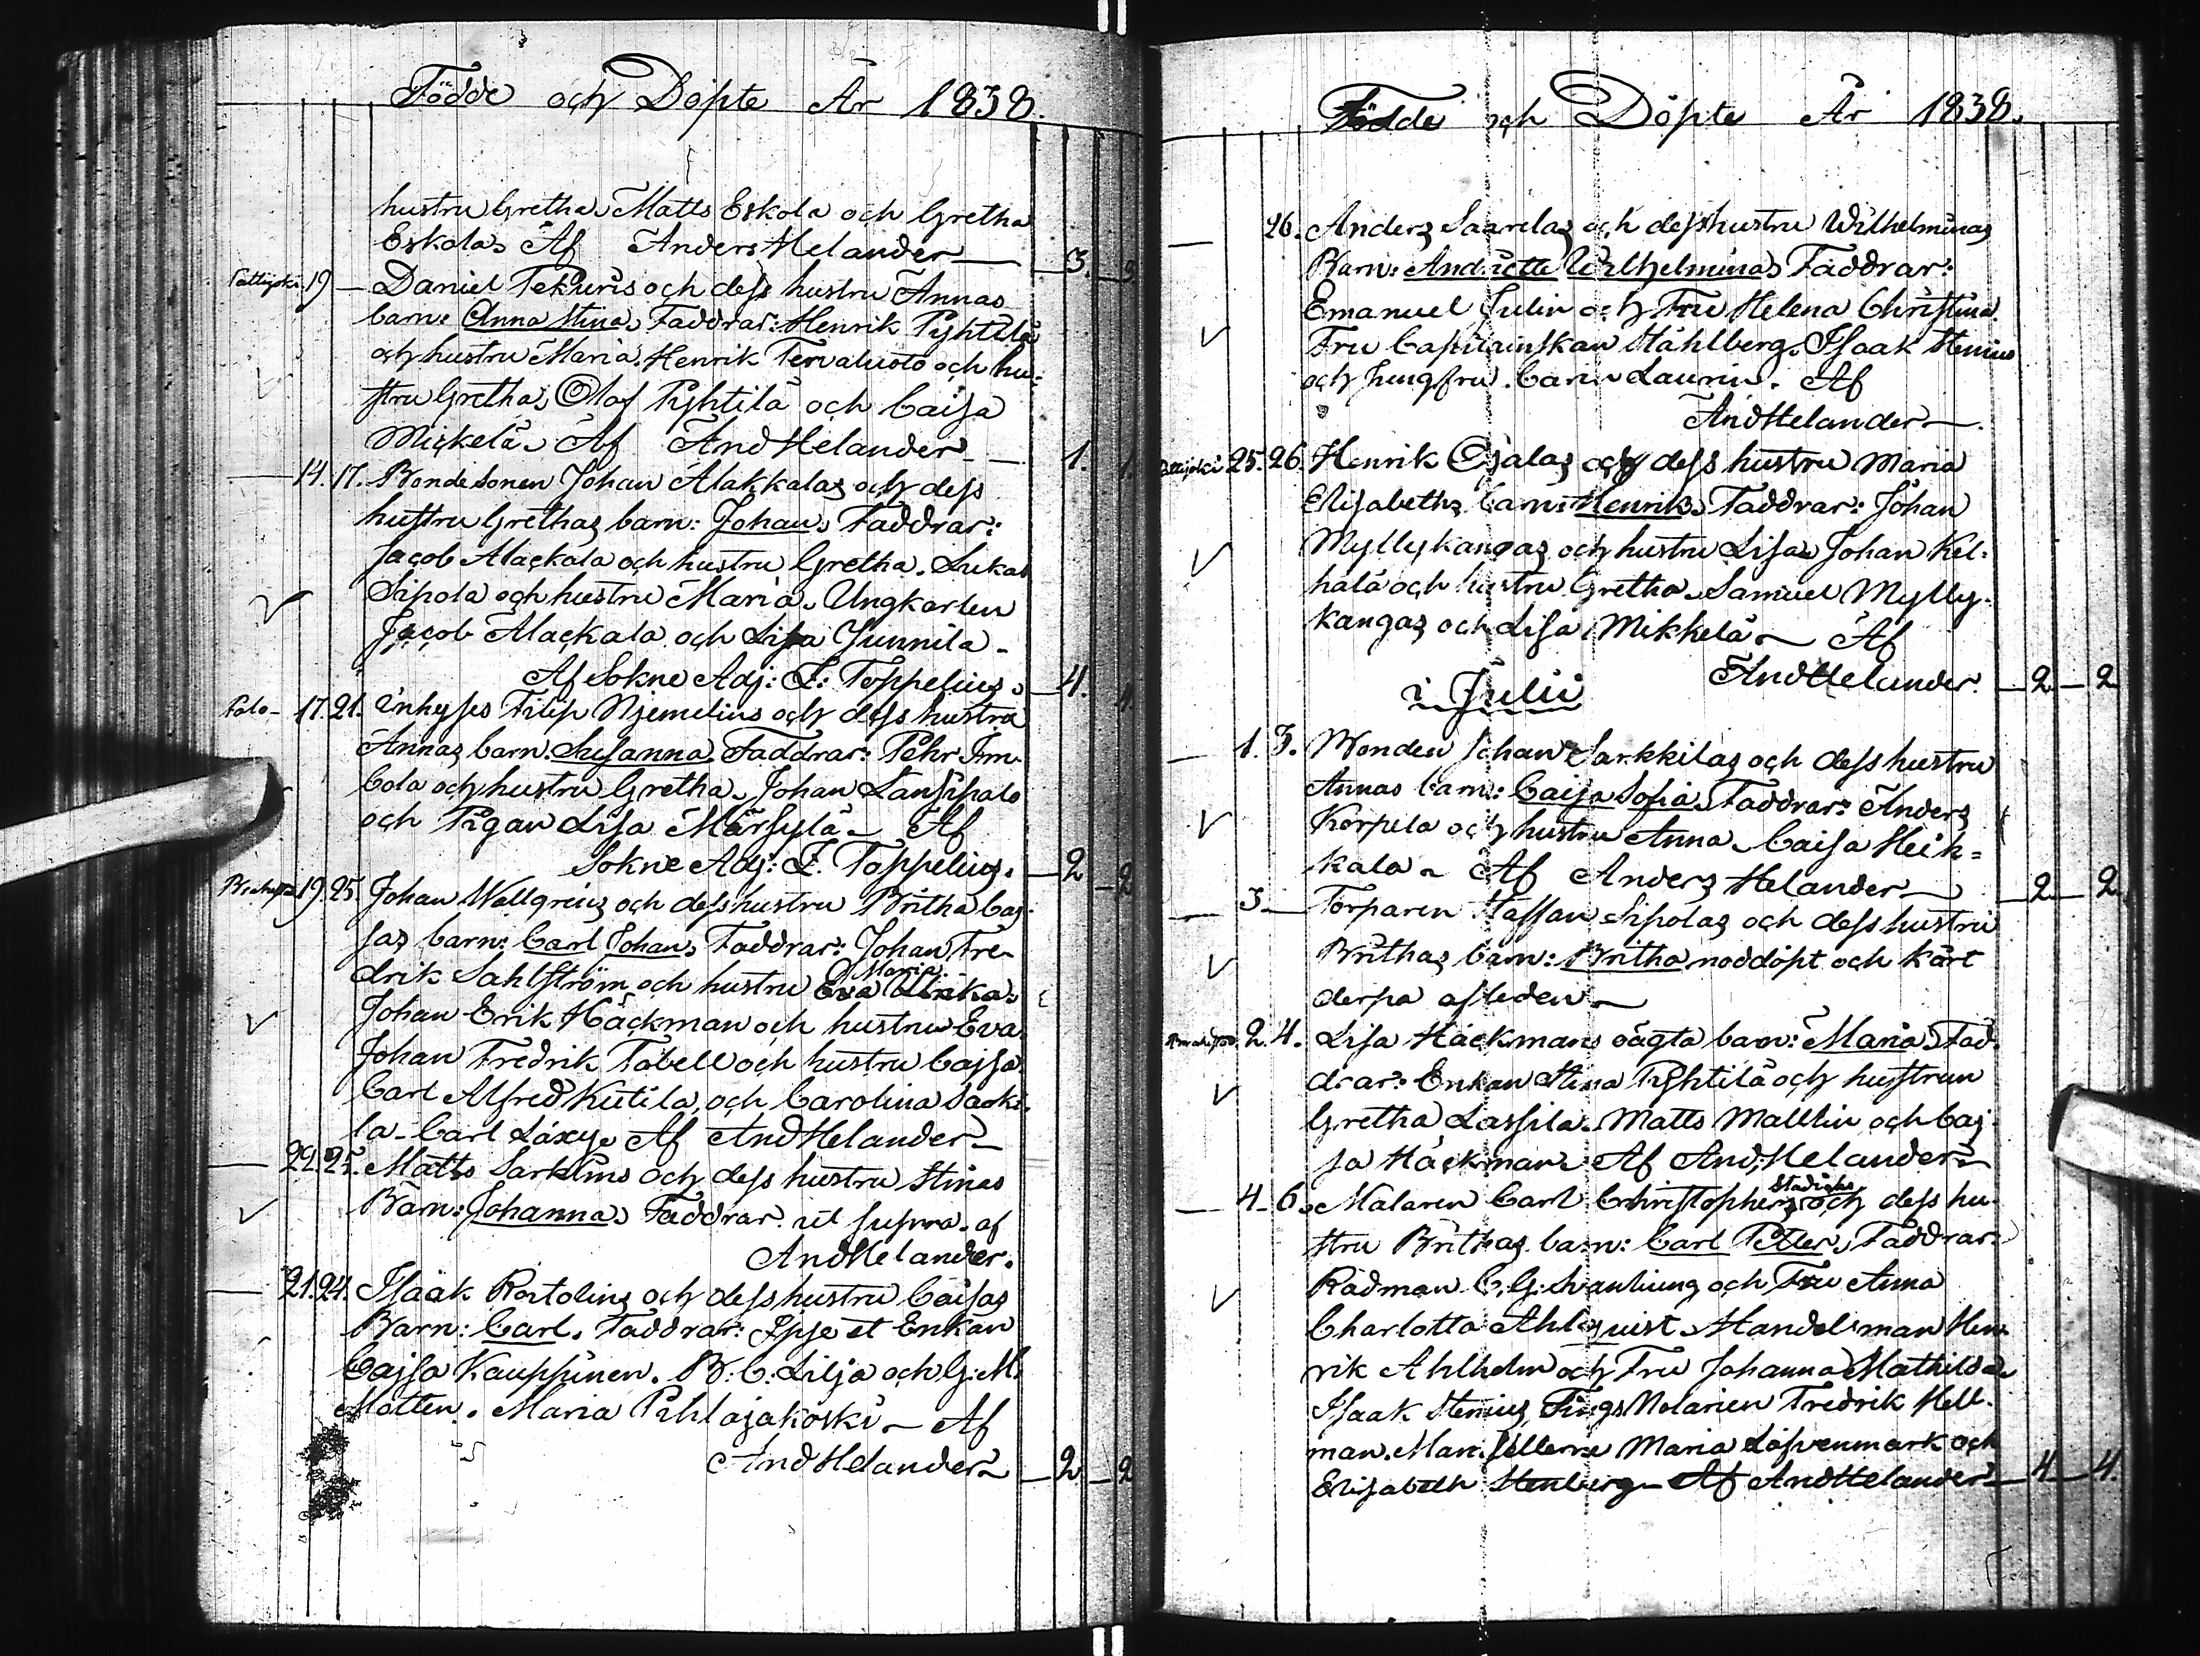 Födde och Döpte År 1838.
hustru Gretha. Matts Eskola och Gretha
Eskola. Af Anders Helander — 3. 3
Pattijoki. 19 — Daniel Tekuris och dess hustru Annas
barn: Anna Stina. Faddrar: Henrik Pyhtilä
och hustru Maria. Henrik Tervaluoto och hu-
stru Gretha. Olof Pyhtilä och Caisa
Mickelä. Af And Helander — 1. 1
14. 17. Bondesonen Johan Alakkalas och dess
hustru Grethas barn: Johan. Faddrar:
Jacob Alackala och hustru Gretha. Lukas
Sipola och hustru Maria. Ungkarlen
Jacob Alackala och Lisa Junnila.
Af Sokne Adj: Z: Toppelius. 4.
Palo- 17. 21. Inhyses Filip Njemelins och dess hustru
Annas barn: Susanna. Faddrar: Pehr Im-
bola och hustru Gretha. Johan Länsipalo
och Pigan Lisa Märsylä. Af
Sokne Adj: Z. Toppelius. 2 2
19. 25. Johan Wallgrens och dess hustru Britha Caj-
sas barn: Carl Johan. Faddrar: Johan Fre-
drik Sahlström och hustru Eva Maria.
Johan Erik Häckman och hustru Eva.
Johan Fredrik Tabell och hustru Cajsa.
Carl Alfred Kutila, och Carolina Sarki-
la. Carl Läxy. Af And Helander
22. 25. Matts Sarklins och dess hustru Stinas
Barn: Johanna. Faddrar ut supra. af
And Helander.
21. 24. Isaak Rostolins och dess hustru Caisas
Barn: Carl. Faddrar: Ipse et Enkan
Cajsa Kauppinen. B: C: Lilja och G: M:
Matten. Maria Pihlajakoski. Af
And Helander 2 2
Födde och Döpte År 1838.
26. Anders Saarelas och dess hustru Wilhelminas
Barn: Andriette Wilhelmina. Faddrar:
Emanuel Julin och Fru Helena Christina.
Fru Capitainskan Ståhlberg. Isaak Stenius
och Jungfru Carin Laurin. Af
And Helander.
Pattijoki 25. 26. Henrik Ojalas och dess hustru Maria
Elisabeths barn: Henrik. Faddrar: Johan
Myllykangas och hustru Lisa. Johan Kel-
hälä och hustru Gretha. Samuel Mylly-
kangas och Lisa Mikkelä. Af
And Helander. 2 2
i Julii
1. 3. Bonden Johan Sarkkilas och dess hustru
Annas barn: Caisa Sofia. Faddrar: Anders
Korpela och hustru Anna. Caisa Heik-
kala. Af Anders Helander 2 2
3 Torparen Staffan Sipolas och dess hustru
Brithas barn: Britha nöddöpt och kårt
derpå afleden
2. 4. Lisa Häckmans oägta barn: Maria. Fad-
drar: Enkan Stina Pyhtilä och hustrun
Gretha Lassila. Matts Mallin och Caj-
sa Häckman. Af And Helander
4. 6. Målaren Carl Christophers Stadighs och dess hu-
stru Brithas barn: Carl Petter. Faddrar:
Rådman C. G. och Fru Anna
Charlotta Ahlquist. Handelsman Hen-
rik Ahlholm och Fru Johanna Mathilda.
Isaak Stenius, Tings Notarien Fredrik Hell-
man. Mamsellerne Maria Löfvenmark och
Elisabeth Stenberg. Af And Helander 4 4.